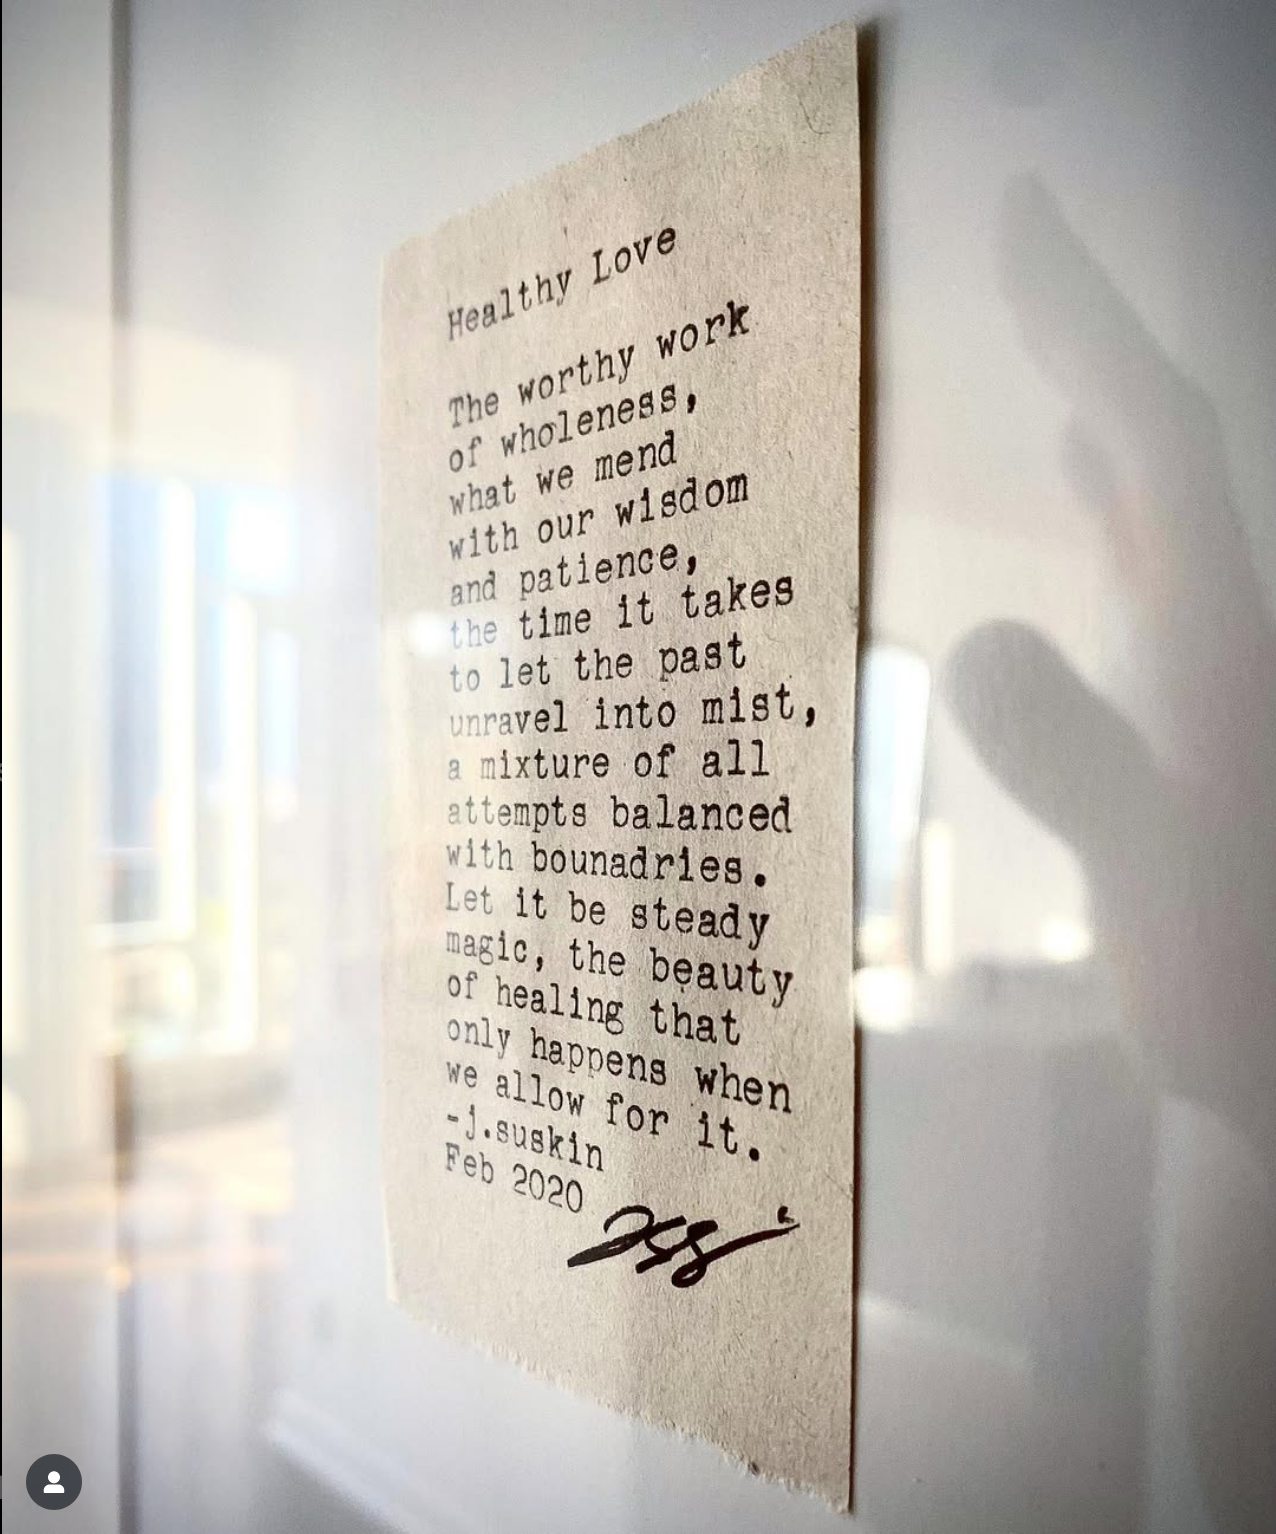 Healthy Love
The worthy work
of wholeness,
what we mend
with our wisdom
and patience,
the time it takes
to let the past
unravel into mist,
a mixture of all
attempts balanced
with bounadries.
Let it be steady
magic, the beauty
of healing that
only happens when
we allow for it.
-j.suskin
Feb 2020